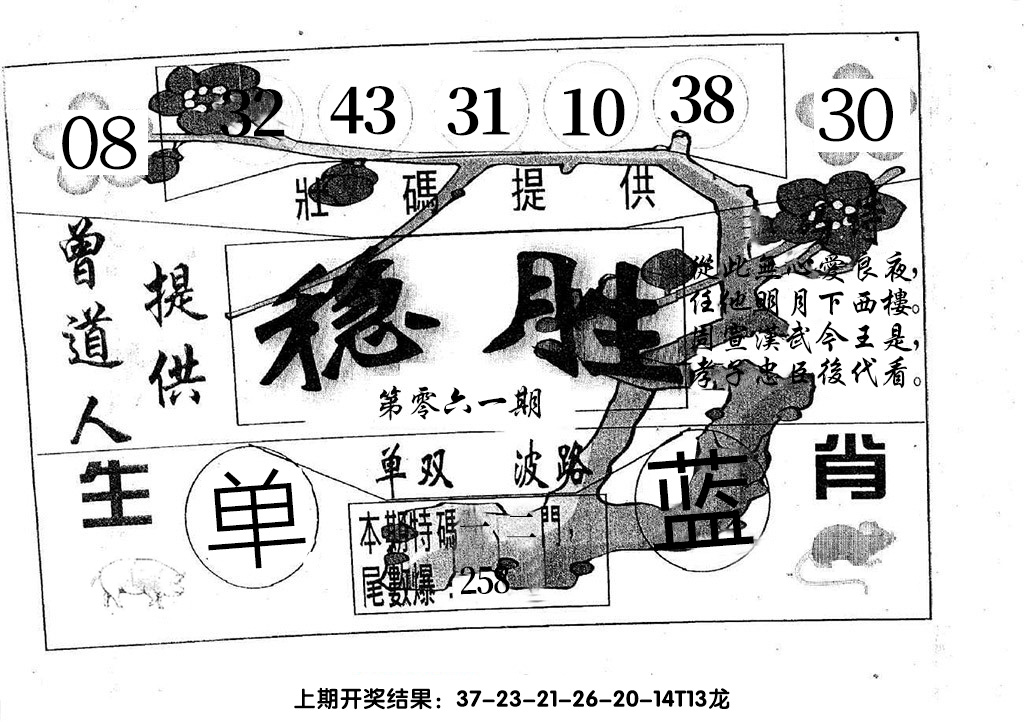 08 32 43 31 10 38 30
壯碼提供
曾道人
提供
特
從此無心愛良夜，
任他明月下西樓。
周宣漢武今王是，
孝子忠臣後代看。
稳胜
第零六一期
单双 波路
生肖
单
蓝
本期特碼一、二門，
尾數爆：258
上期开奖结果：37-23-21-26-20-14T13龙